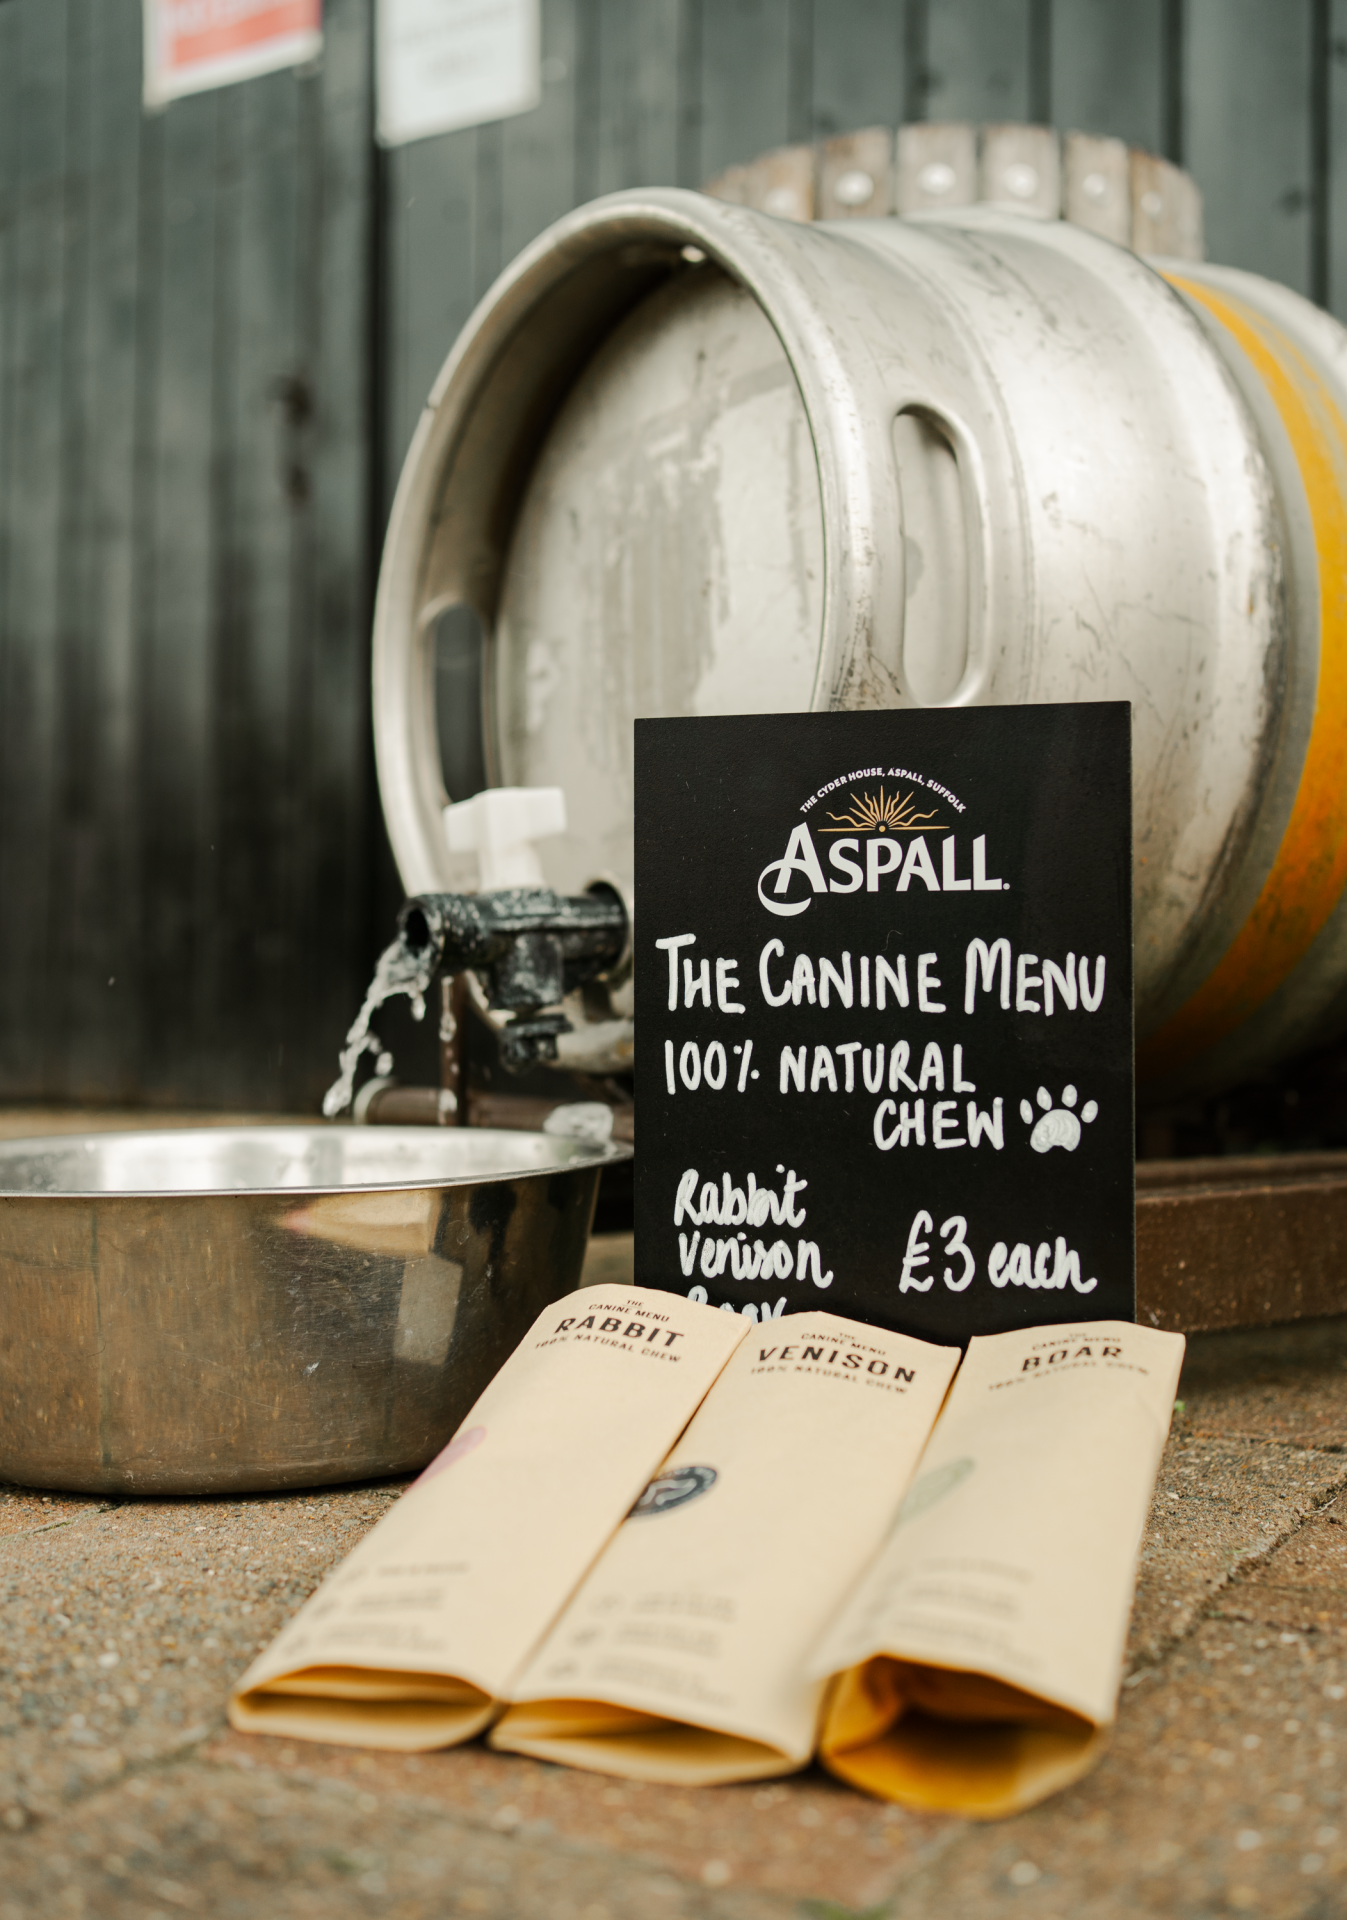 THE CYDER HOUSE, ASPALL, SUFFOLK
ASPALL
THE CANINE MENU
100% NATURAL
CHEW
Rabbit
Venison
£3 each
Boar
THE
CANINE MENU
RABBIT
100% NATURAL CHEW
THE
CANINE MENU
VENISON
100% NATURAL CHEW
THE
CANINE MENU
BOAR
100% NATURAL CHEW